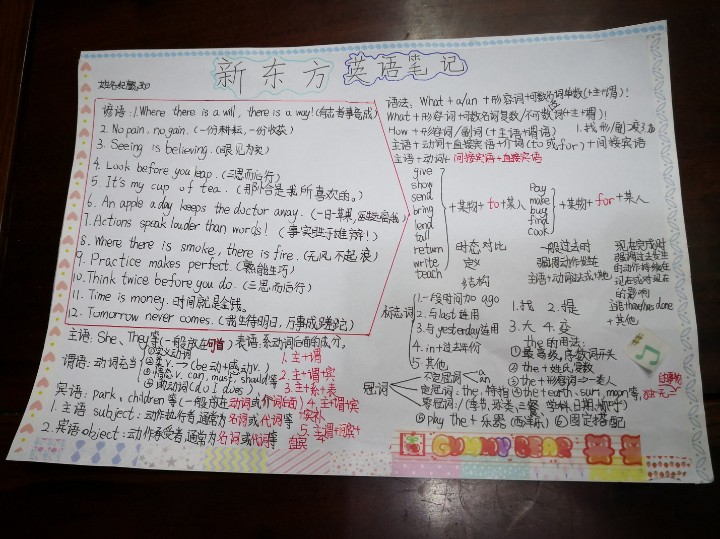 新东方 英语笔记
谚语:1.Where there is a will, there is a way!(有志者事竟成)
2. No pain. no gain.(一份耕耘,一份收获)
3. Seeing is believing.(眼见为实)
4. Look before you leap.(三思而后行)
5. It's my cup of tea.(那恰合是我所喜欢的。)
6. An apple a day keeps the doctor away.(一日一苹果,医生远离我)
7. Actions speak louder than words!(事实胜于雄辩!)
8. Where there is smoke, there is fire.(无风不起浪)
9. Practice makes perfect.(熟能生巧)
10. Think twice before you do.(三思而后行)
11. Time is money. 时间就是金钱。
12. Tomorrow never comes.(我生待明日,万事成蹉跎)
主语: She、They等(一般放在句首)
表语:系动词后面的成分。
谓语:动词充当
①实义动词
②be v. → (be动+感动v.)
③情态v. can, must, should等
④助动词(do I does)
1.主+谓
2.主+谓+宾
3.主+系+表
宾语: park、children等(一般放在动词或介词后面)
4.主+谓+宾+宾补
1. 主语 subject:动作执行者,通常为名词或代词等
2. 宾语 object:动作承受者,通常为名词或代词等
语法: What + a/an + 形容词+可数名词单数(+主+谓)!
What + 形容词+可数名词复数/不可数(+主+谓)!
How + 形容词/副词(+主语+谓语)
主语+动词+直接宾语+介词(to或for)+间接宾语
主语+动词+间接宾语+直接宾语
give
show
send
bring
lend
tall
return
write
teach
+某物+to+某人
Pay
make
buy
find
cook
+某物+for+某人
时态对比 一般过去时 现在完成时
定义 强调动作发生
强调过去发生的动作持续在现在或对现在的影响
结构 主语+动词过去式+其他
主语+have/has+done+其他
标志词
1.一段时间加 ago
2.与last连用
3.与yesterday连用
4.in+过去年份
5.其他
1.找 2.提
3.大 4.变
the的用法:
①最高级,序数词开头
②the+姓氏复数
③the+形容词→一类人
④the+earth、sun、moon等,独一无二
冠词
不定冠词 a an
定冠词: the.特指
⑤play the+乐器(西洋乐)
⑥固定搭配
GUMMY BEAR